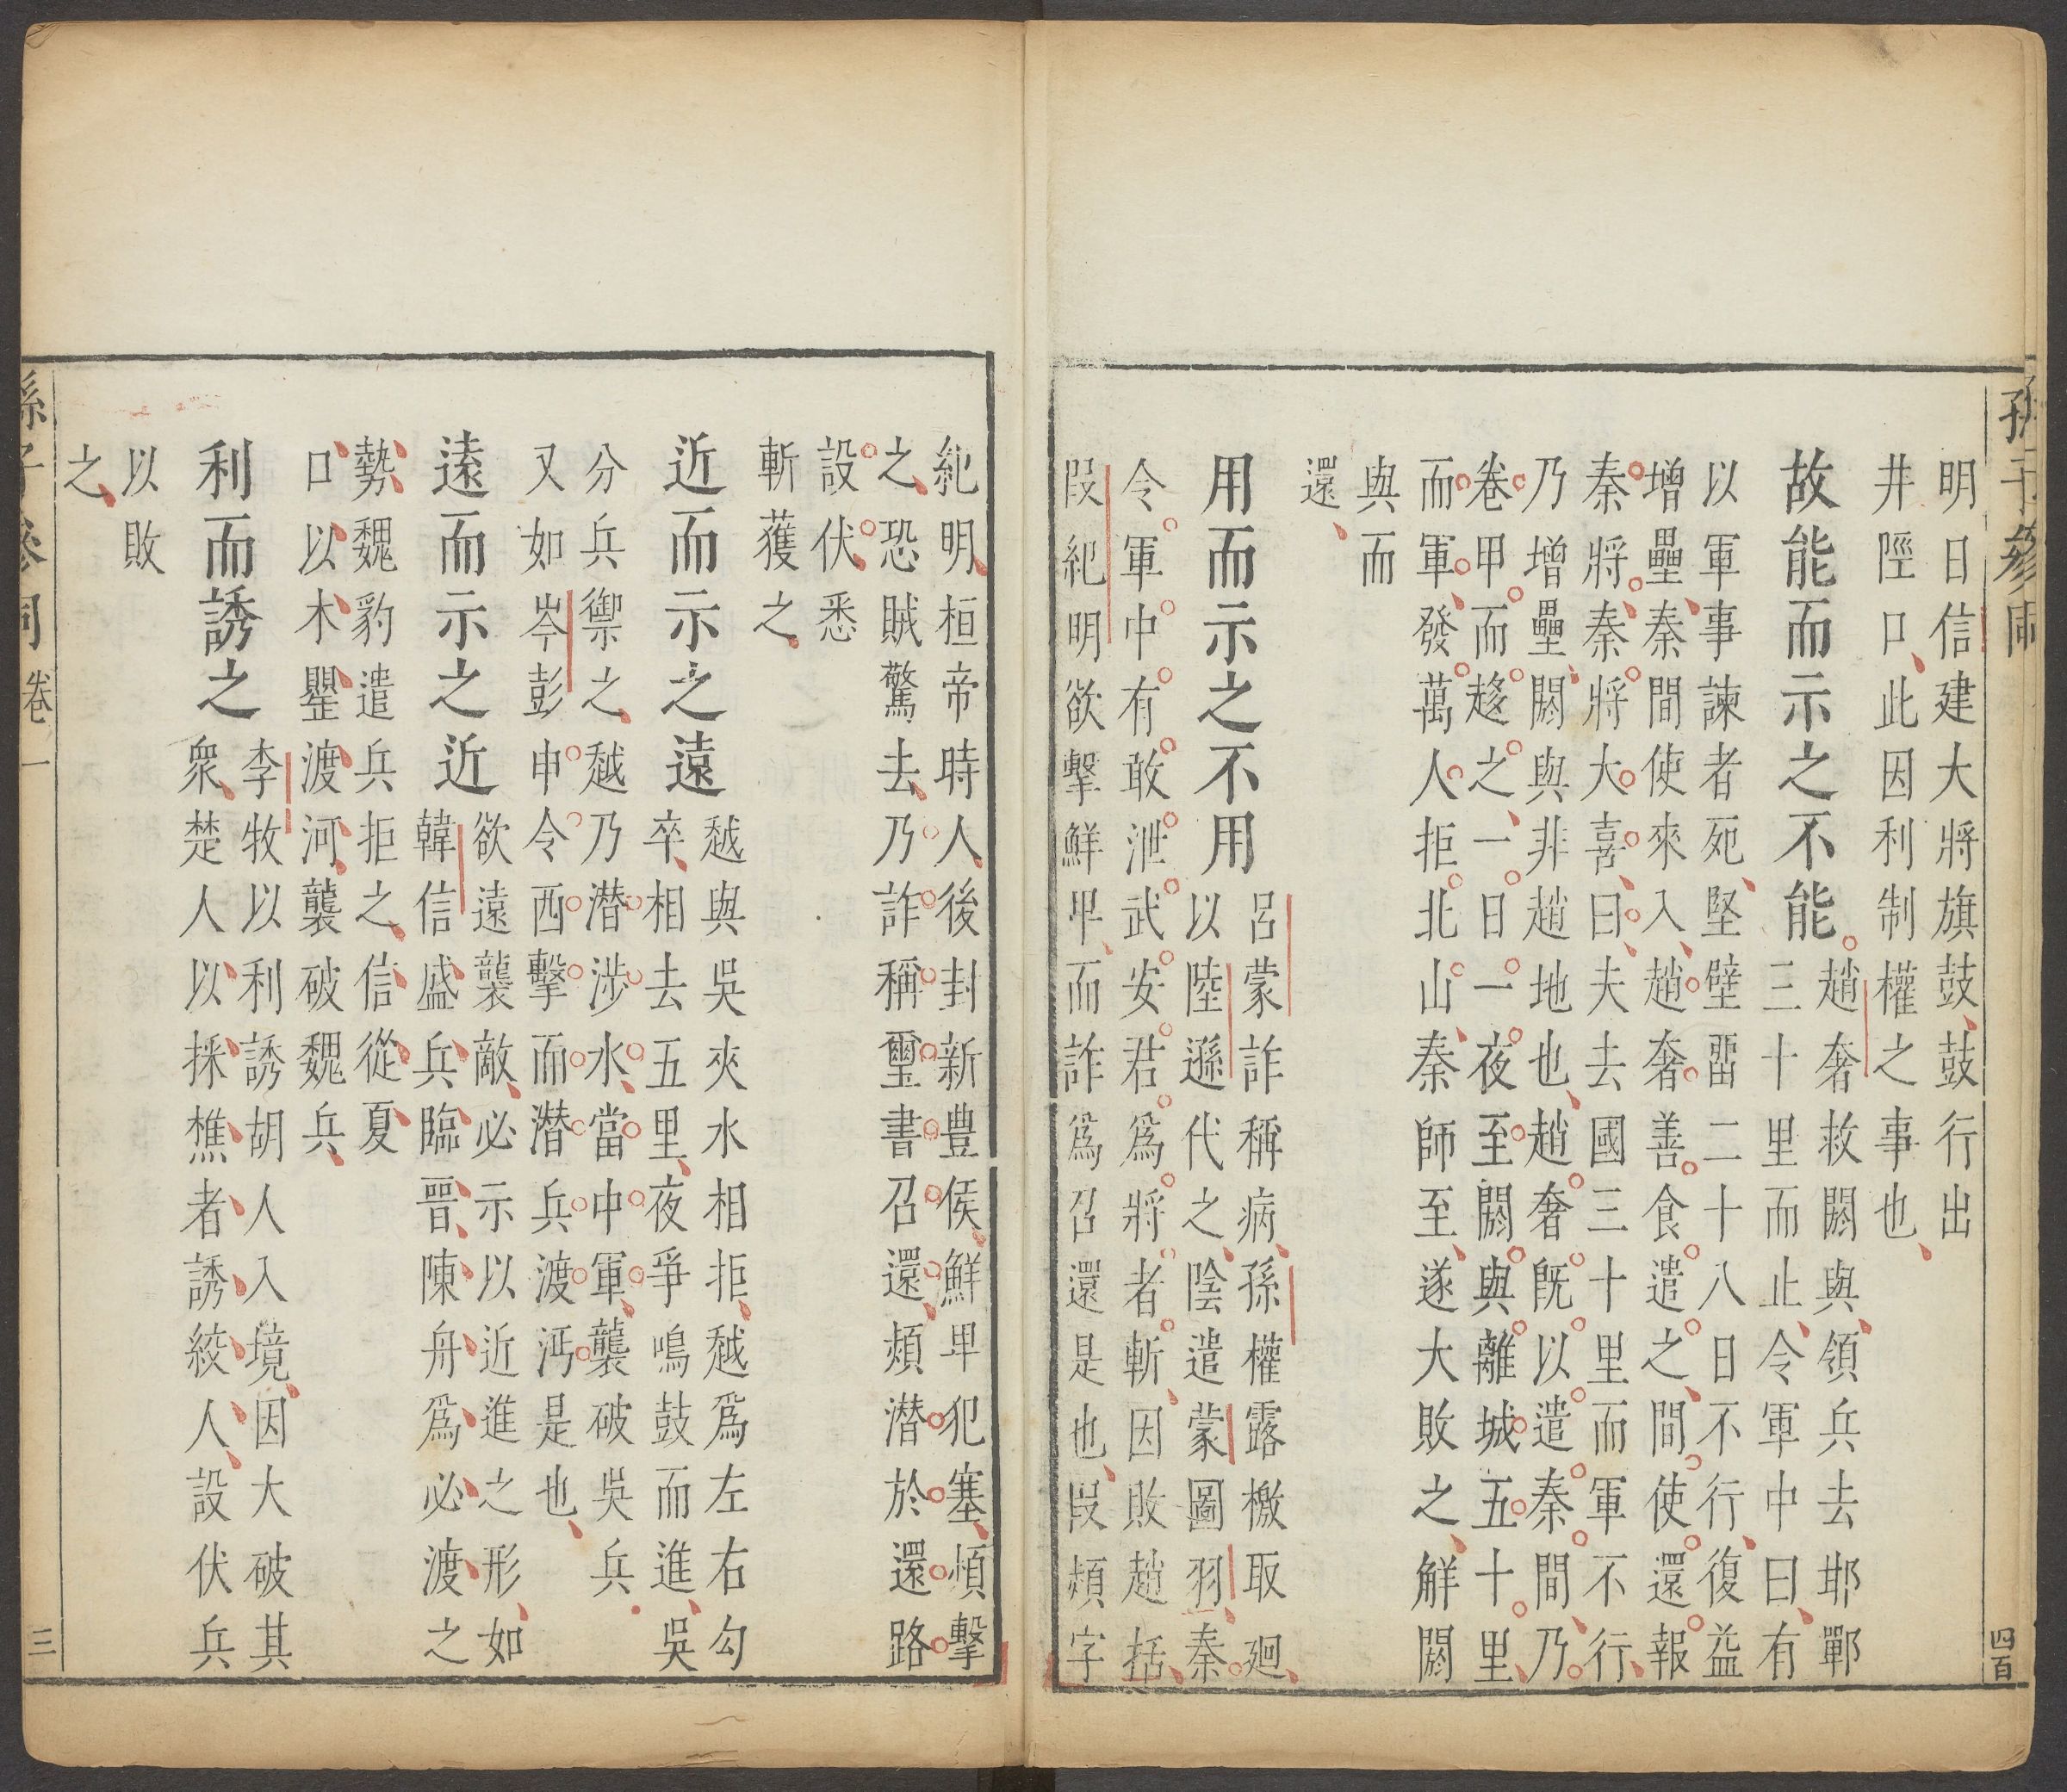 孫子參同
四百
明日信建大將旗鼓鼓行出
井陘口此因利制權之事也
故能而示之不能
趙奢救閼與領兵去邯鄲
三十里而止令軍中曰有
以軍事諫者死堅壁畱二十八日不行復益
增壘秦間使來入趙奢善食遣之間使還報
秦將秦將大喜曰夫去國三十里而軍不行
乃增壘閼與非趙地也趙奢旣以遣秦間乃
卷甲而趍之一日一夜至閼與離城五十里
而軍發萬人拒北山秦師至遂大敗之解閼
與而
還
用而示之不用
呂蒙詐稱病孫權露檄取廻
以陸遜代之陰遣蒙圖羽秦
令軍中有敢泄武安君爲將者斬因敗趙括
段紀明欲擊鮮卑而詐爲召還是也段熲字
紀明桓帝時人後封新豊侯鮮卑犯塞熲擊
之恐賊驚去乃詐稱璽書召還熲潛於還路
設伏悉
斬獲之
近而示之遠
越與吳夾水相拒越爲左右勾
卒相去五里夜爭鳴鼓而進吳
分兵禦之越乃潜涉水當中軍襲破吳兵
又如岑彭申令西擊而潜兵渡沔是也
遠而示之近
欲遠襲敵必示以近進之形如
韓信盛兵臨晉陳舟爲必渡之
勢魏豹遣兵拒之信從夏
口以木罌渡河襲破魏兵
利而誘之
李牧以利誘胡人入境因大破其
衆楚人以採樵者誘絞人設伏兵
以敗
之
孫子參同
卷一
三